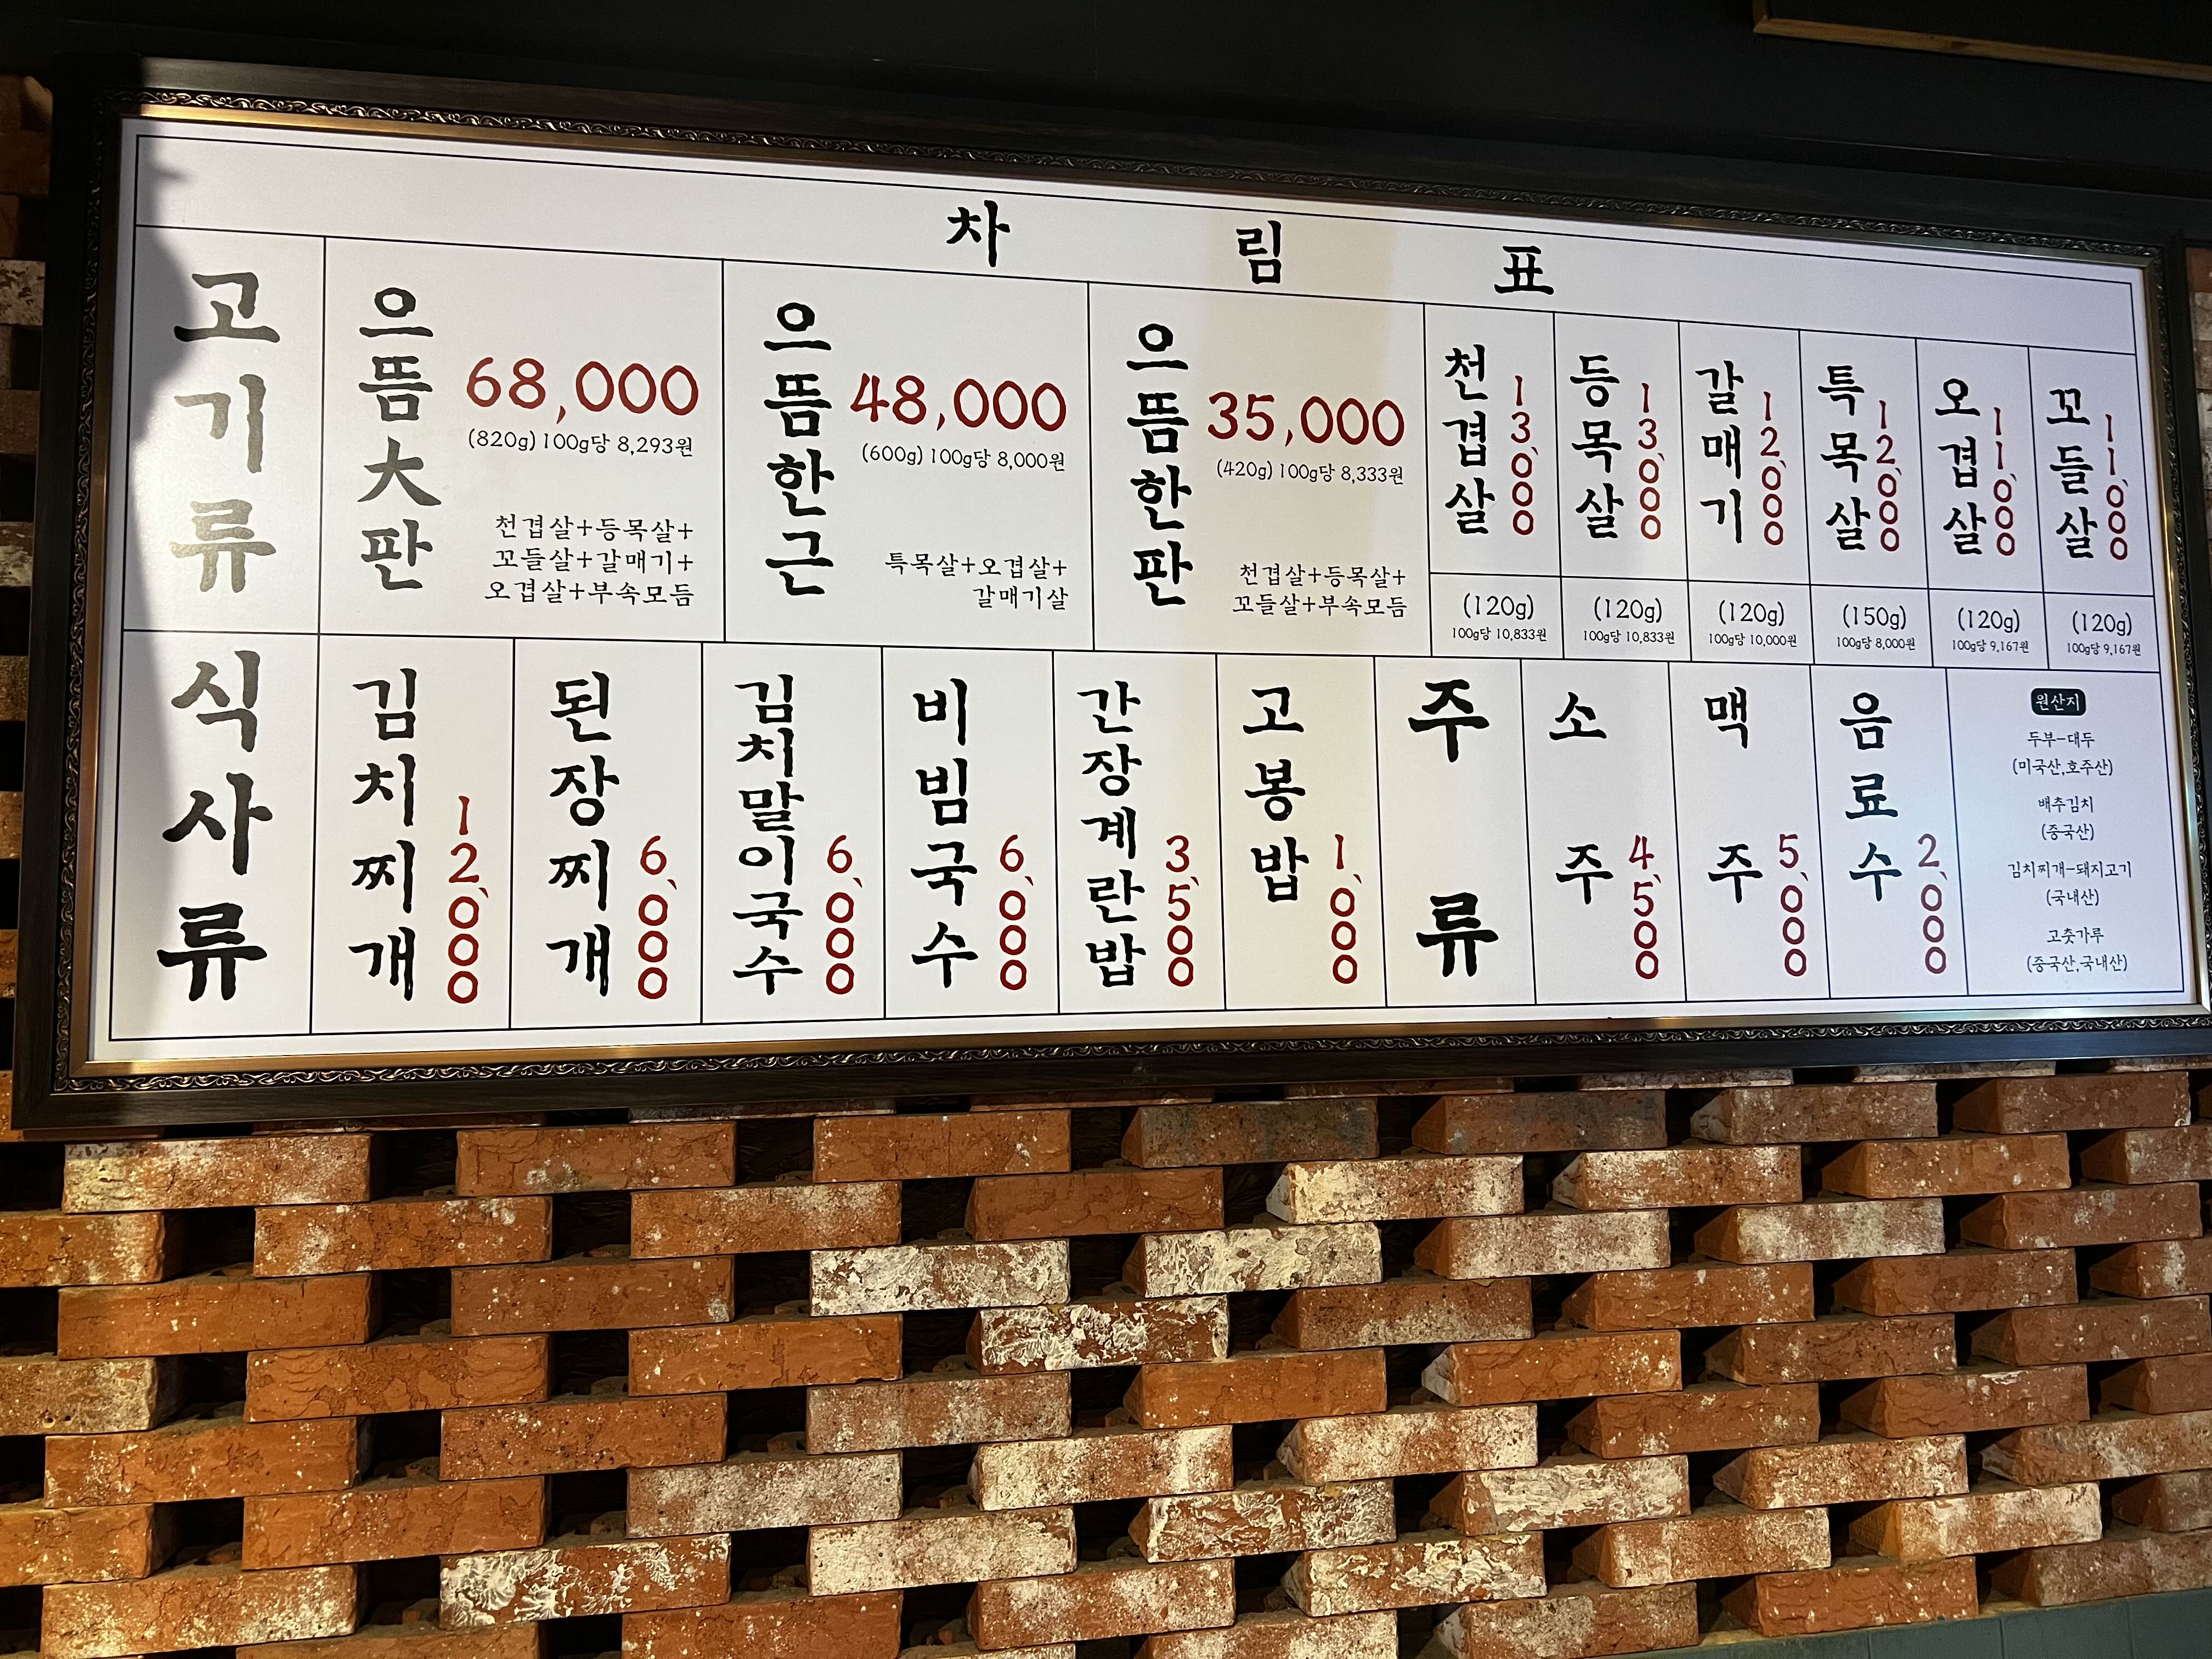 차림표
고기류
으뜸大판
68,000
(820g) 100g당 8,293원
천겹살+등목살+
꼬들살+갈매기+
오겹살+부속모듬
으뜸한근
48,000
(600g) 100g당 8,000원
특목살+오겹살+
갈매기살
으뜸한판
35,000
(420g) 100g당 8,333원
천겹살+등목살+
꼬들살+부속모듬
천겹살
13,000
(120g)
100g당 10,833원
등목살
13,000
(120g)
100g당 10,833원
갈매기
12,000
(120g)
100g당 10,000원
특목살
12,000
(150g)
100g당 8,000원
오겹살
11,000
(120g)
100g당 9,167원
꼬들살
11,000
(120g)
100g당 9,167원
식사류
김치찌개
12,000
된장찌개
6,000
김치말이국수
6,000
비빔국수
6,000
간장계란밥
3,500
고봉밥
1,000
주류
소주
4,500
맥주
5,000
음료수
2,000
원산지
두부-대두
(미국산,호주산)
배추김치
(중국산)
김치찌개-돼지고기
(국내산)
고춧가루
(중국산,국내산)